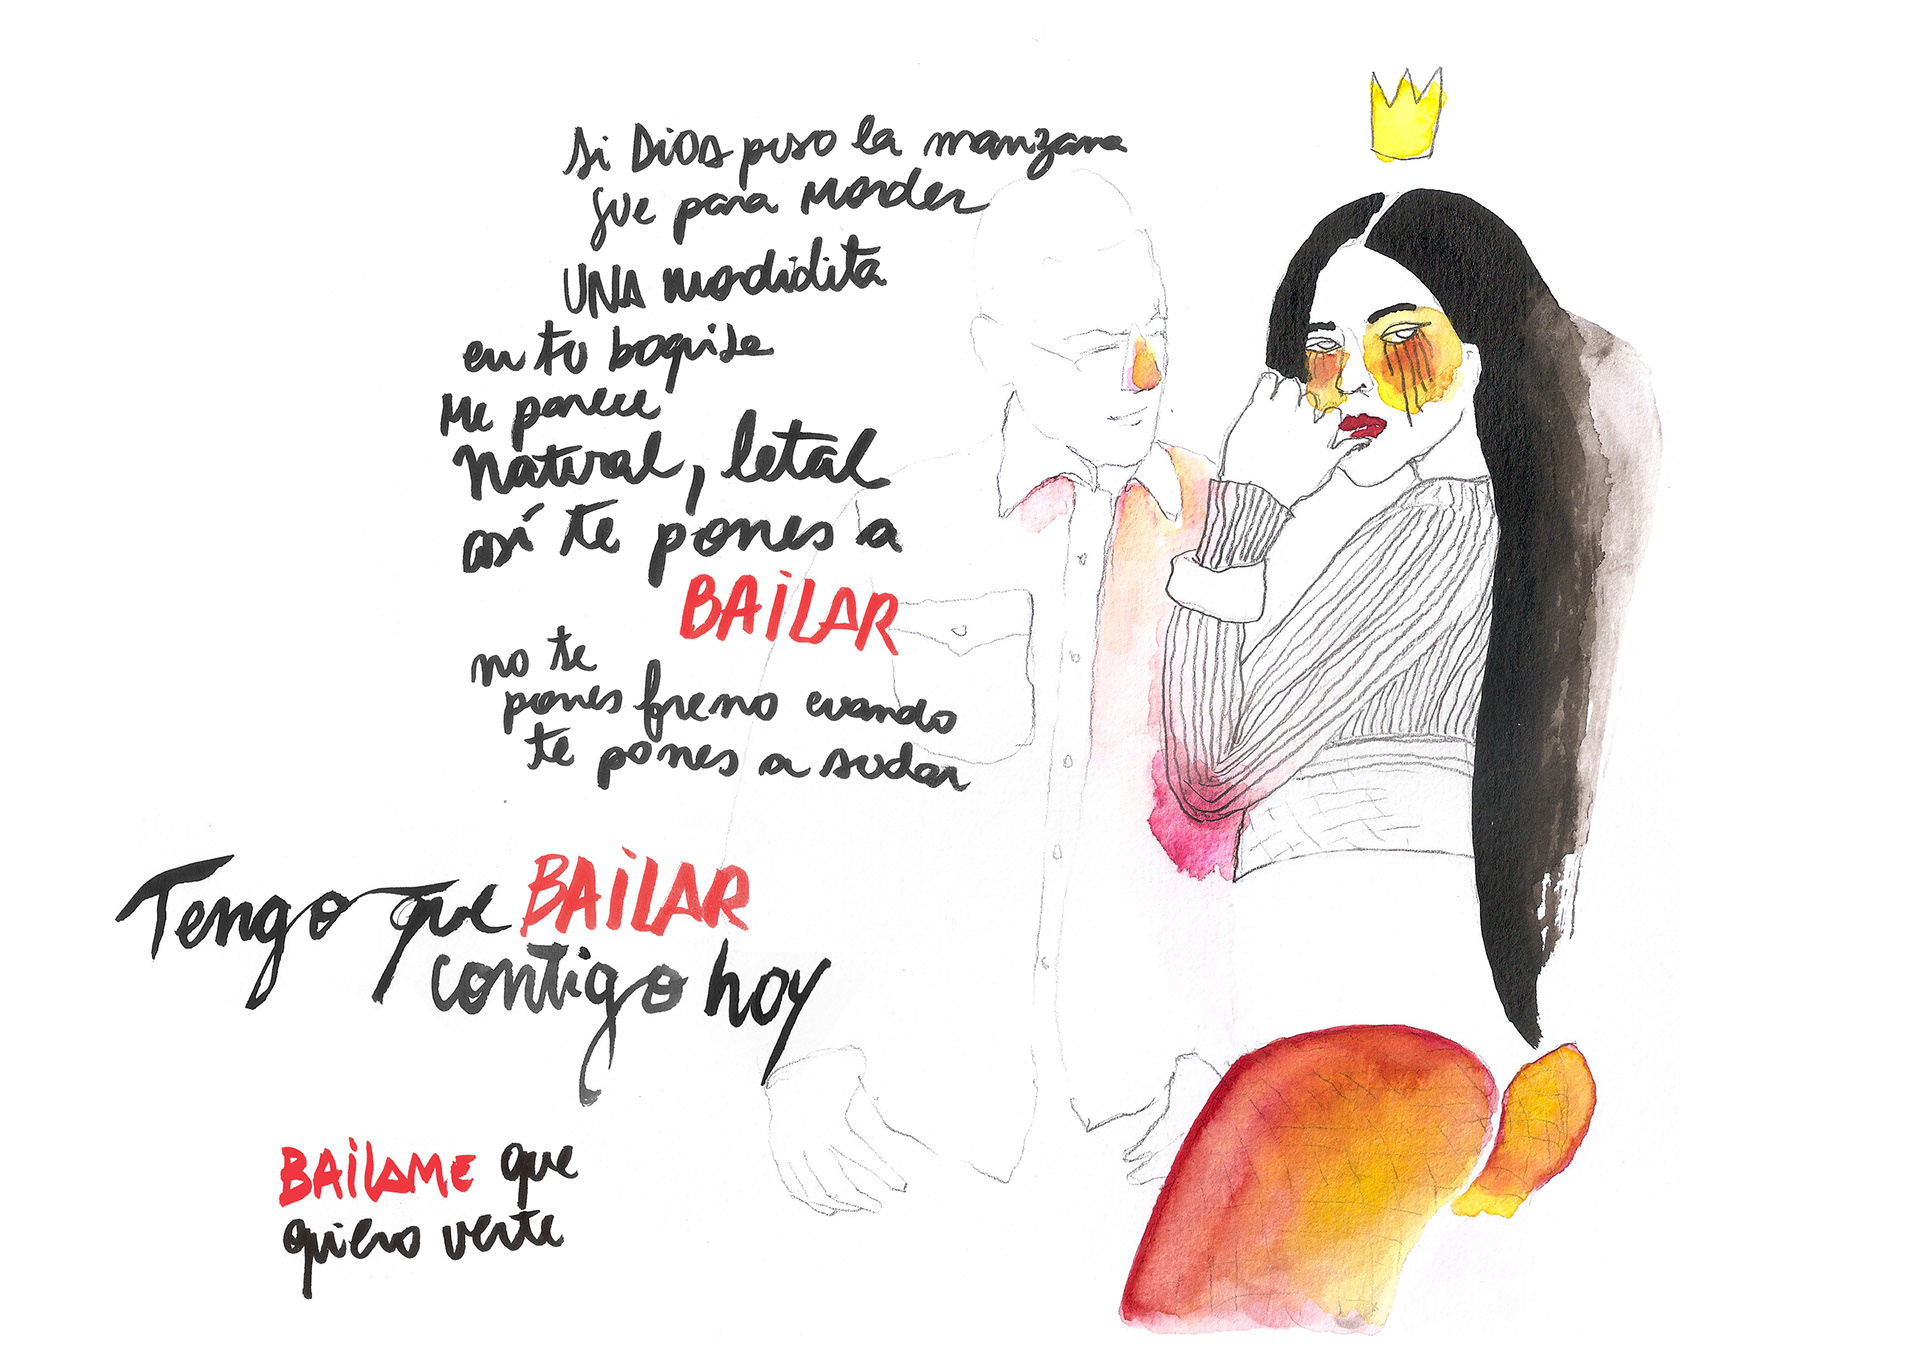 si DiOS puso la manzana
fue para Morder
UNA mordidita
en tu boquite
Me parece
Natural, letal
así te pones a
BAiLAR
no te
pones freno cuando
te pones a sudar
Tengo que BAiLAR
contigo hoy
BAiLAME que
quiero verte